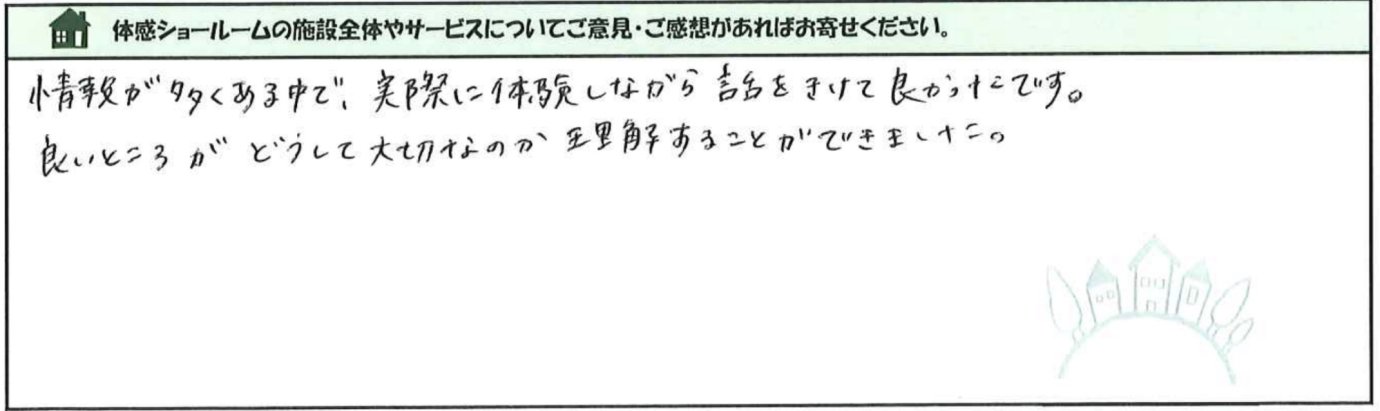 体感ショールームの施設全体やサービスについてご意見・ご感想があればお寄せください。
情報が多くある中で、実際に体験しながら話をきけて良かったです。
良いところがどうして大切なのか理解することができました。